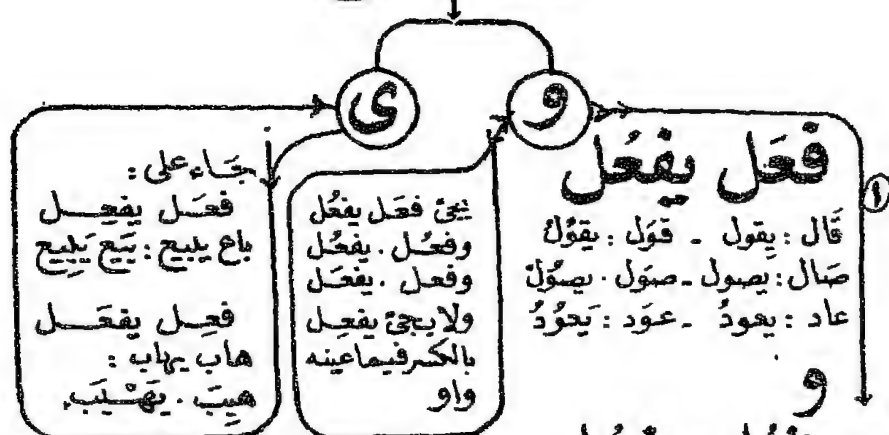 و
ى
فعَل يفعُل
١
قَال : يقول - قوَل : يقوُل
صَال : يصول - صوَل . يصوُل
عاد : يعودُ - عوَد : يَعوُدُ
و
يجئ فعَل يفعُل
وفعُل . يفعُل
وفعل . يفعَل
ولا يجئ يفعِل
بالكسر فيما عينه
واو
جَاء على :
فعَل يفعِل
باع يبيع : بَيَع يَبْيِع
فعِل يفعَل
هاب يهاب :
هيِبَ . يَهْيَب